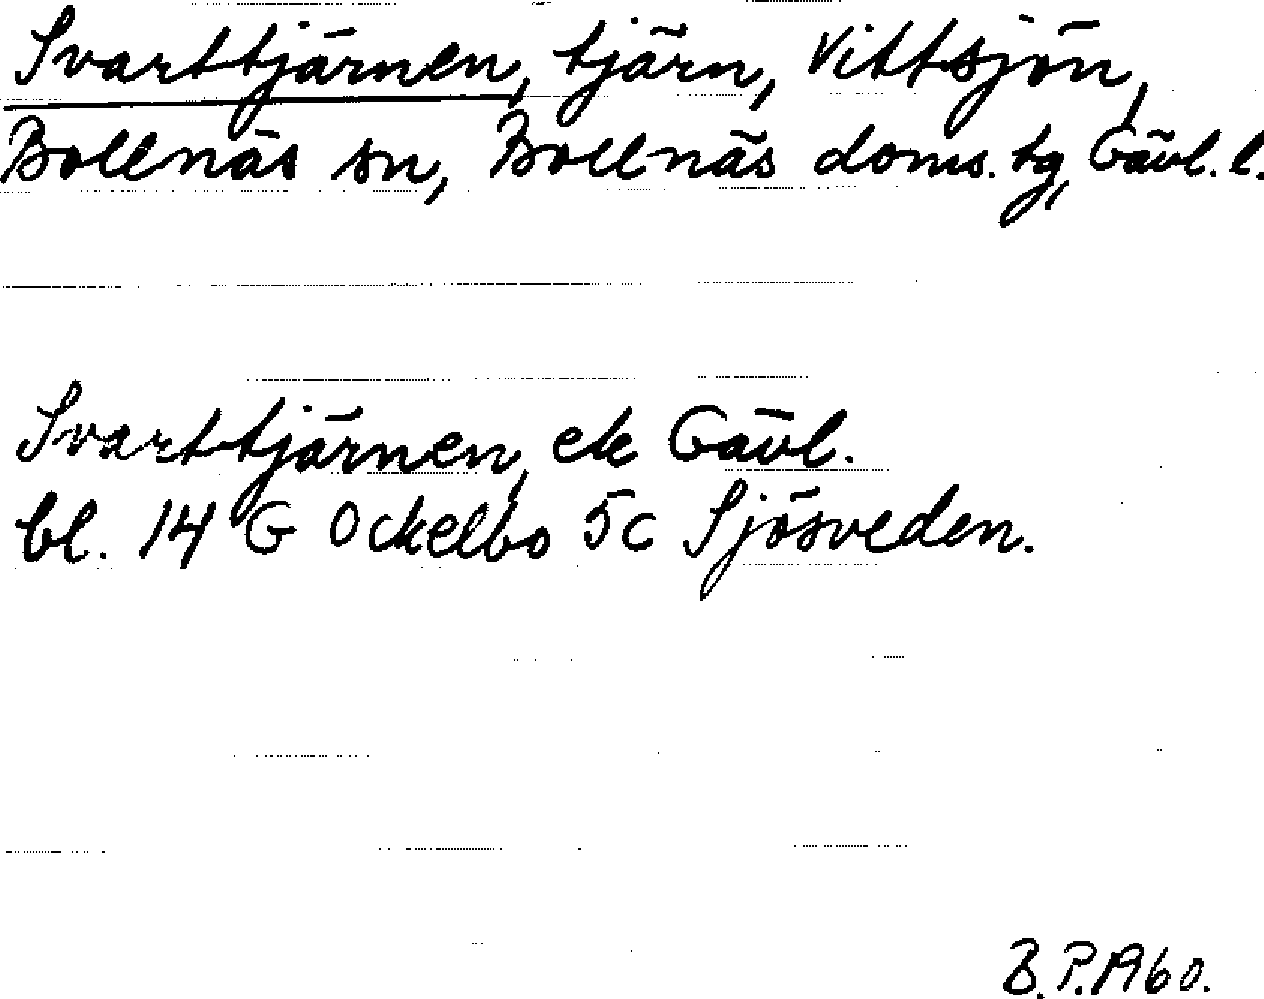 Svarttjärnen, tjärn, Vittsjön,
Bollnäs sn, Bollnäs doms. tg, Gävl. l.
Svarttjärnen, ek Gävl.
bl. 14 G Ockelbo 5c Sjösveden.
B. P. 1960.